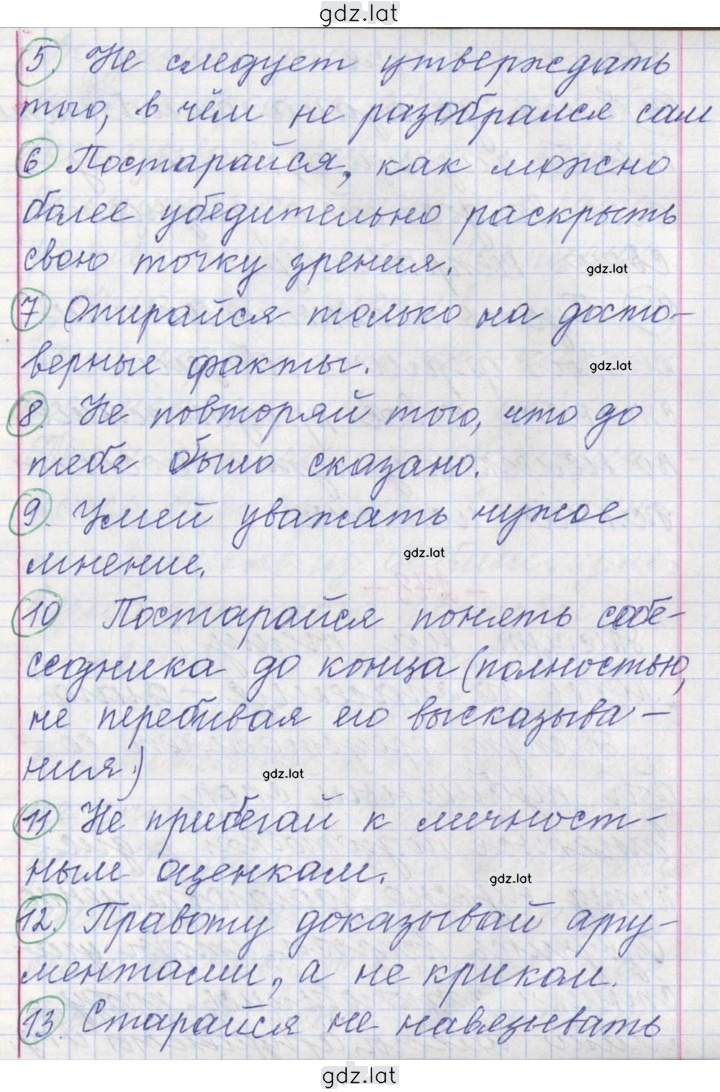 gdz.lat
5 Не следует утверждать
того, в чём не разобрался сам
6 Постарайся, как можно
более убедительно раскрыть
свою точку зрения.
gdz.lat
7 Опирайся только на досто-
верные факты.
gdz.lat
8. Не повторяй того, что до
тебя было сказано.
9. Умей уважать чужое
gdz.lat
мнение.
10 Постарайся понять собе-
седника до конца (полностью,
не перебивая его высказыва-
ния.)
gdz.lat
11 Не прибегай к личност-
ным оценкам.
gdz.lat
12. Правоту доказывай аргу-
ментами, а не криком.
13. Старайся не навязывать
gdz.lat